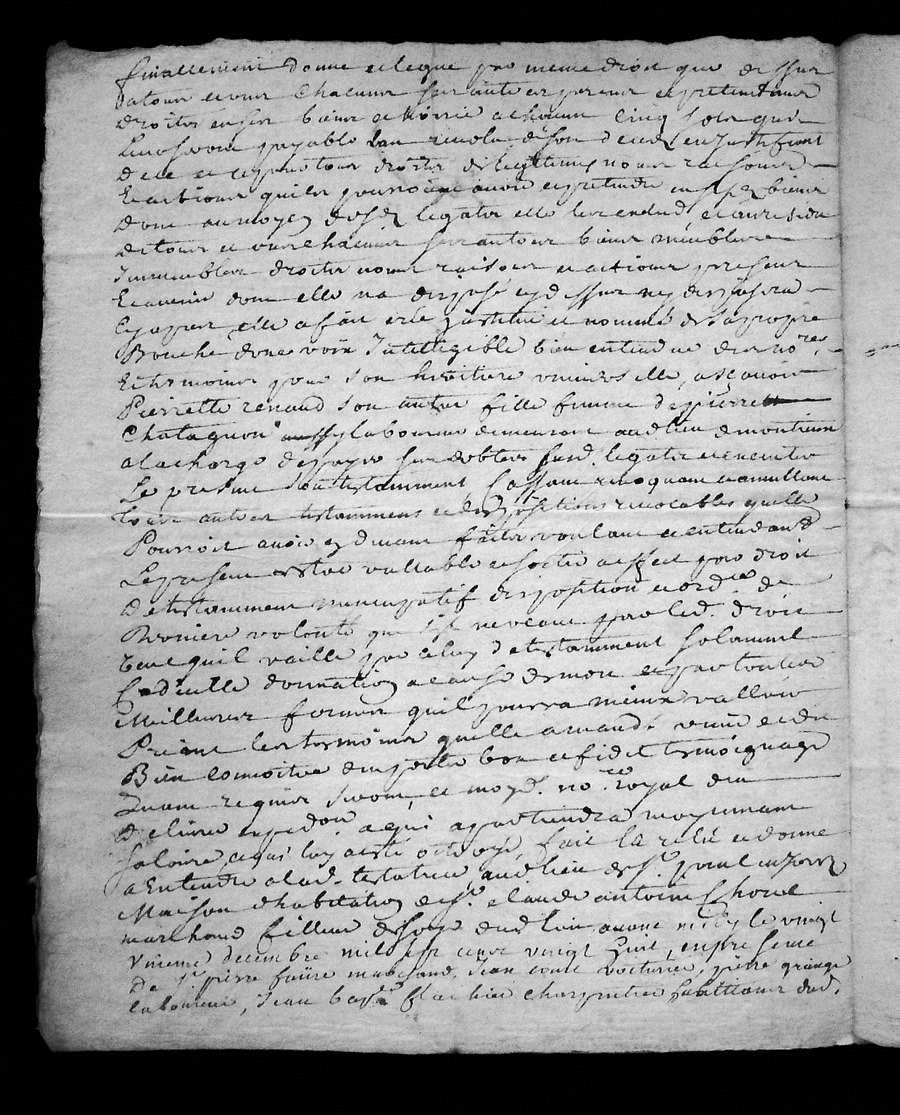 finallement donne et legue par meme droit que dessus
a tous et un chacuns ses autres parens et pretendans
droits en ses biens et hoirie a chacun cinq sols que
payable
de ce et ce pour tous droits de legitime noms raisons
et actions qu'ils pourroient avoir et pretendre en sesd. biens
dont au moyen desd. legats elle les en dud. et au residu
de tous et uns chacuns ses autres biens meubles
immeubles droits noms raisons et actions presens
et avenir dont elle na disposé cy dessus ny disposera
cy apres elle a fait créé institué et nommé de sa propre
Bouche d'une voix Intelligible bien entendue des no.res
et tesmoins pour son hératiere universelle, a sçavoir
Pierrette renaud son autre fille femme de pierre
Chataguon aussy laboureur demeurant audt. lieu de montrieux
a la charge de payer ses debtes susd. legats et executer
le present son testamment Cassant revoquant et annullant
tous autres testammens et dispositions revocables quelle
Pourroit avoir cy devant faites voulant et entendant
Le present estre vallable et sortir a effect par droit
de testamment nuncupatif disposition et ord.ce de
Derniere volonté que s'il ne vaut par led. droit
veut qu'il vaille par celuy de testamment solamnel
Codicille donnation a cause de mort et par toutes
Meilleures formes qu'il pourra mieux valloir
Priant les tesmoins quelle a mandé venir et du
Bien Connoitre dy porter bon et fidel tesmoignage
Duant requier savoir, et moyd. no.re royal den
delivrer expedon. a qui appartiendra moyennant
salaire, ce qui luy a esté octroyé, fait lû relû et donné
a Entendre a lad. testatrice audt. lieu de St. paul en jarez
Maison d'habitation de Sr. Claude antoine
marchand filleur de soye dud. lieu avant midy le vingt
unieme decembre mil sept cens vingt huit, en presence
de Sr. pierre faure marchand, Jean conte voiturier, pierre grange
laboureur, Jean bapt.e flachier charpentier habittans dud.